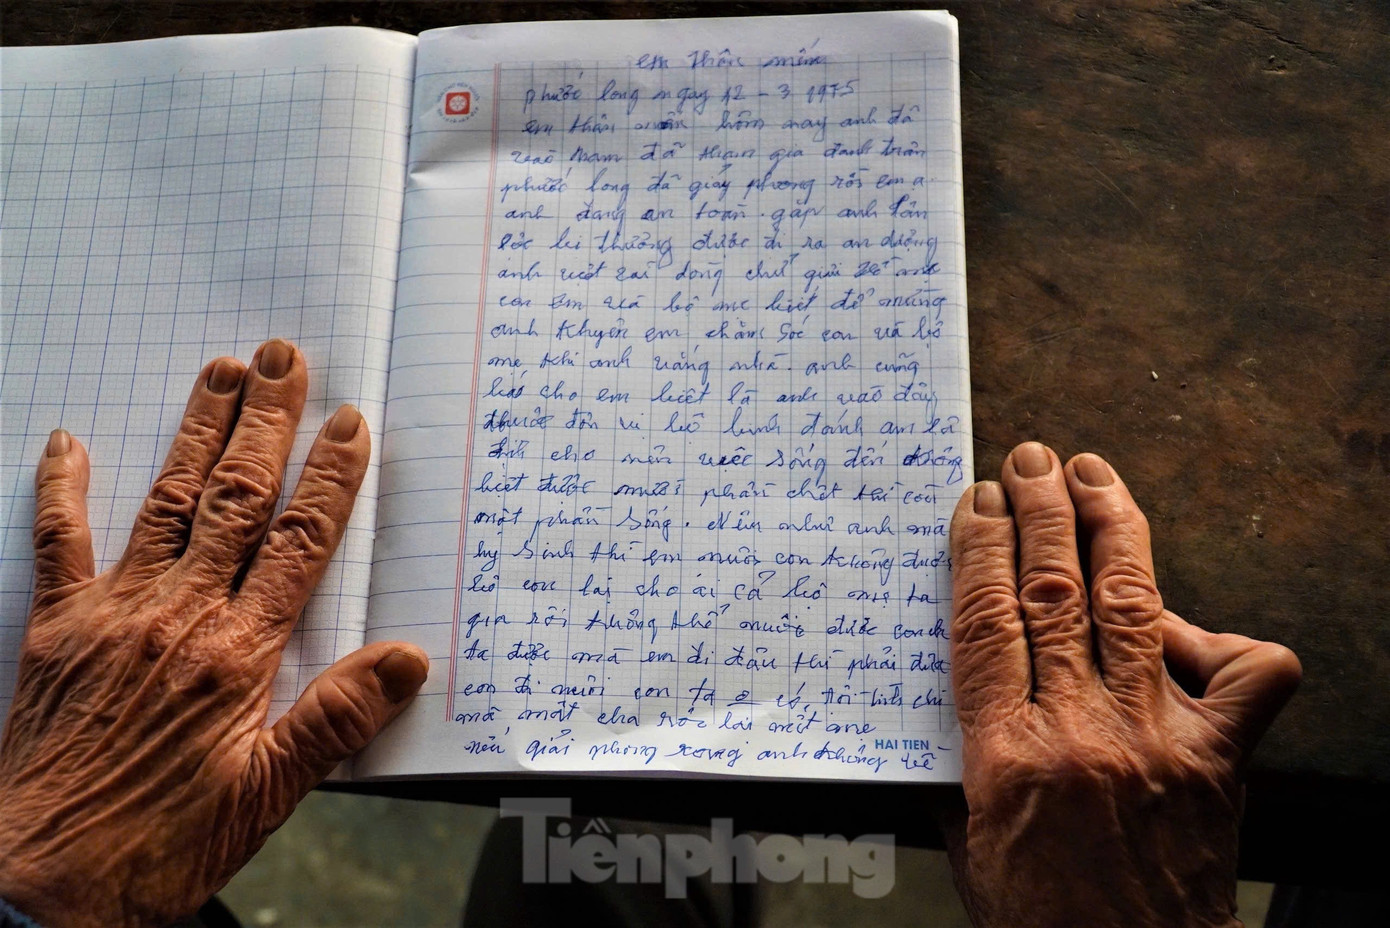 em thân mến
phước long ngay 12 - 3 1975
em thân mến hôm nay anh đã
vaò Nam đã tham gia đanh trân
phước long đã giảy phong rồi em ạ
anh đang an toan. gặp anh
bi thương được đi ra an dưỡng
anh viêt vai dong chư gưi về
con em và bô me biêt để mưng
anh khuyên em chăm Sóc con và bô
mẹ khi anh văng nhà. anh cũng
baó cho em biêt là anh vaò đây
thuôc đơn vị bô binh đánh
cho nên viêc Sông đên không
biêt được mươi phân chêt thì con
môt phân Sông. Nêu như anh mà
hy Sinh thì em nuôi con không được
bỏ con lại cho ai cả bô mẹ ta
gia rồi không thể nuôi được con
ta được mà em đi đâu thì phải đưa
con đi nuôi con ta
mà mât cha rôi lai mât me
nêu giải phong xong anh không về
HAI TIEN
Tiềnphong